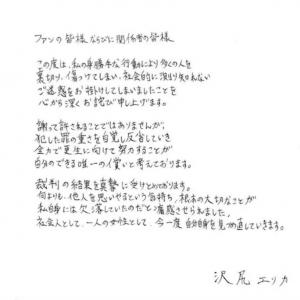 ファンの皆様ならびに関係者の皆様
この度は、私の身勝手な行動により多くの人を
裏切り、傷つけてしまい、社会的に測り知れない
ご迷惑をお掛けしてしまいましたことを
心から深くお詫び申し上げます。
謝って許されることではありませんが、
犯した罪の重さを自覚し反省していき
全力で更生に向けて努力することが
自分のできる唯一の償いと考えております。
裁判の結果を真摯に受けとめております。
何よりも、他人を思いやるという気持ち、根本の大切なことが
私自身には欠落していたのだと痛感させられました。
社会人として、一人の女性として、今一度自分自身を見つめ直していきます。
沢尻エリカ